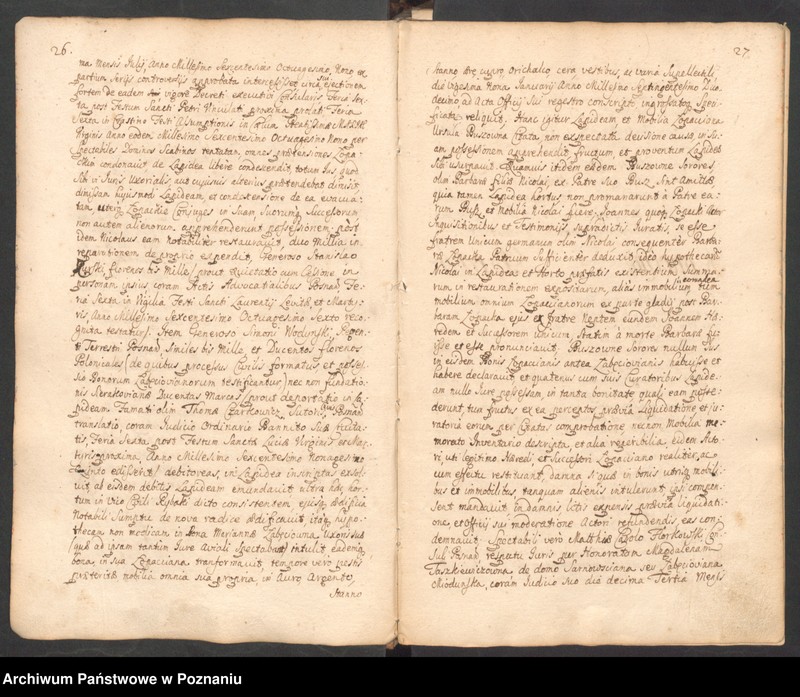 26.
ma Mensis Julij Anno Millesimo Sexcentesimo Octuagesimo Nono ex
partium Juris controversijs approbata
sortem de eadem vigore Decreti executivi Consularis Feria Sex
ta post Festum Sancti Petri Vinculati proxima
Sexta in Crastino Festi Assumptionis in Caelum
Virginis Anno eodem Millesimo Sexcentesimo Octuagesimo Nono per
spectabiles Dominos Scabinos tentatam omnes praetensiones Zapa
condonavit de Lapidea libere condescendit, totum Jus quod
sibi in Juris Uxorialis aut cujusvis alterius praetendebat dimisit
dimissam hujusmodi Lapideam, et condescensione de ea evacua
tam, Conjuges in Suam Suorumq Successorum
non autem alienorum apprehenderunt possessionem, post
idem Nicolaus eam notabiliter restauravit, duo Millia in
reparationem de proprio expendit, Generoso Stanislao
florenos bis Mille, prout quietatio cum Cessione in
personam ipsius coram Actis Advocatialibus Posnan Fe
ria Sexta in Vigilia Festi Sancti Laurentij Levitae et Marty
ris Anno Millesimo Sexcentesimo Octuagesimo Sexto reco
gnita testatur. Item Generoso Simoni Wodynski, Regen
ti Terrestri Posnan Similes bis Mille et Ducentos florenos
Polonicales (de quibus processus Civilis formatus, et posses
sio Bonorum Zabeciovianorum testificantur) nec non fundatio
nis Serakovianae Ducentas Marcas (prout deportatio in La
pideam Famati olim Thomae Czarkowic Sutoris Civis Posnan
translatio, coram Judicio Ordinario Bannito Suae
tis, Feria Sexta post Festum Sanctae Luciae Virginis et Mar
tiris proxima, Anno Millesimo Sexcentesimo Nonagesimo
edissent) debitoreas, in Lapidea inscriptas exsol
vit, ab eisdem debitis Lapideam emundavit ultra haec hor
tum in vico Rybaki dicto consistentem, ejusq aedificia
Notabili Sumptu de nova radice aedificavit itaq hypo
thecam non modicam in bona Mariannae Zabeciowna Uxoris suae
(quae ad ipsam tantum Jure Aviali Spectabant) intulit eademq
bona, in sua Zapaciana transformavit, tempore vero pestis
praeteritae mobilia omnia sua propria, in Auro Argento,
Stanno
27
Stanno Aere cupro Orichalco cera vestibus, ac varia Supellectili
die Vigesima Nona Januarij Anno Millesimo Septingentesimo Duo
decimo, ad Acta Officij Sui registro conscripto ingrossatoq Speci
ficata reliquit. Hanc igitur Lapideam et Mobilia Zapaciana
Ursula Buszowna Citata, non expectata decisione causae, in Su
am possessionem apprehendit fructum, et proventum Lapideae
sibi usurpavit. Quamvis itidem eaedem Buszowne Sorores
olim Barbarae filiae Nicolai, ex Patre Suo Busz Sint Amitae
quia tamen Lapidea hortus non promanarunt a Patre ea
rum Busz et Nobilia Nicolai fuere, Joannes quoq Zapacki Actor
Inquisitionibus et Testimonijs, supradictis Juratis, se esse
fratrem Unicum germanum olim Nicolai consequenter Barba
rae Zapacka Patruum Sufficienter deduxit, ideo hypothecam
Nicolai in Lapidea et Horto praefatis existentium Summa
rum in restaurationem expositarum, alias immobilium complex tum
mobilium omnium Zapacianorum ex parte gladij post Bar
baram Zapacka ejus ex fratre Neptem eundem Joannem Hae
redem et Successorem unicum, Statim a morte Barbarae fu
isse et esse pronunciavit. Buszowne Sorores nullum Jus
in eisdem Bonis Zapacianis antea Zabeciovianis habuisse et
habere declaravit, et quatenus cum Suis Curatoribus Lapide
am nullo Jure possessam, in tanta bonitate quali eam posse
derunt, tum fructus ex ea perceptos praevia Liquidatione, et ju
ratoria eorum per Citatas comprobatione necnon Mobilia me
morato Inventario descripta, et alia reperibilia, eidem Acto
ri, uti legitimo Haeredi et Successori Zapaciano realiter, ac
cum effectu restituant, damna si quae in bonis utriusq mobili
bus et immobilibus, tanquam alienis intulerunt, ipsi compen
sent mandavit, in damnis litis expensis praevia liquidati
one, et officij sui moderatione Actori refundendis eas con
demnavit. Spectabili vero Matthiae Carolo Florkowski Con
suli Posnan respectu Juris per Honoratam Magdalenam
Taszkiewiczowna de domo Sarnowsciana seu Zabeciovianа
Miodunska, coram Judicio suo die decima Tertia Mensis
Archiwum Państwowe w Poznaniu